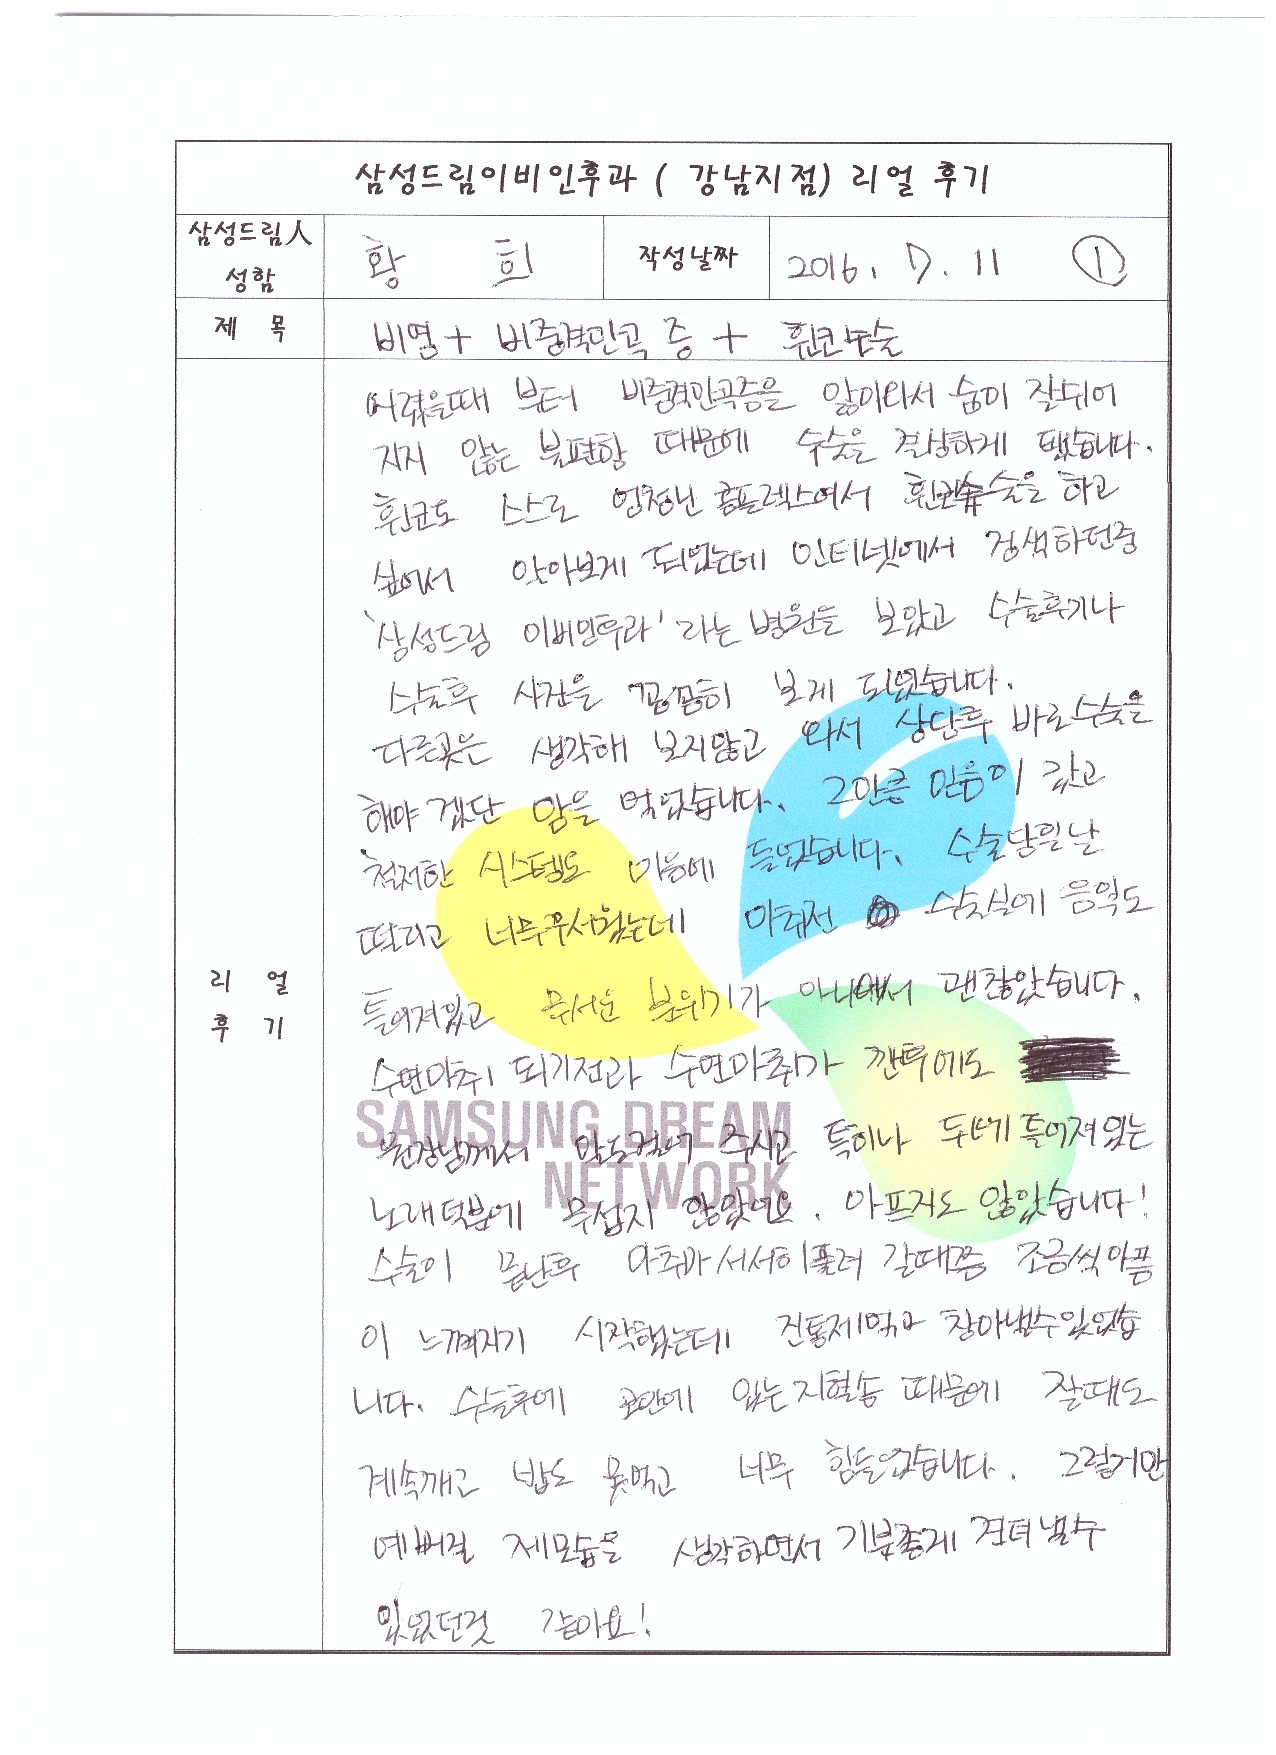 삼성드림이비인후과 ( 강남지점) 리얼 후기
삼성드림人 성함
황 희
작성날짜
2016. 7. 11 ①
제 목
비염 + 비중격만곡증 + 휜코수술
리 얼 후 기
어렸을때 부터 비중격만곡증을 앓아와서 숨이 잘쉬어
지지 않는 불편함 때문에 수술을 결심하게 됐습니다.
휜코도 스스로 엄청난 콤플렉스여서 휜코수술을 하고
싶어서 알아보게 되었는데 인터넷에서 검색하던중
'삼성드림 이비인후과' 라는 병원을 보았고 수술후기나
수술후 사진을 꼼꼼히 보게 되었습니다.
다른곳은 생각해 보지않고 와서 상담후 바로수술을
해야 겠단 맘을 먹었습니다. 그만큼 믿음이 갔고
철저한 시스템도 마음에 들었습니다. 수술당일날
떨리고 너무무서웠는데 마취전 수술실에 음악도
틀어져있고 무서운 분위기가 아니여서 괜찮았습니다.
수면마취 되기전과 수면마취가 깬후에도
원장님께서 말도걸어 주시고 특히나 두번째 틀어져있는
노래덕분에 무섭지 않았어요. 아프지도 않았습니다!
수술이 끝난후 마취가서서히풀려 갈때쯤 조금씩아픔
이 느껴지기 시작했는데 진통제먹고 참아낼수있었습
니다. 수술후에 코안에 있는지혈솜 때문에 잘때도
계속깨고 밥도 못먹고 너무 힘들었습니다. 그렇지만
예뻐질 제모습을 생각하면서 기분좋게 견뎌낼수
있었던것 같아요!
SAMSUNG DREAM
NETWORK